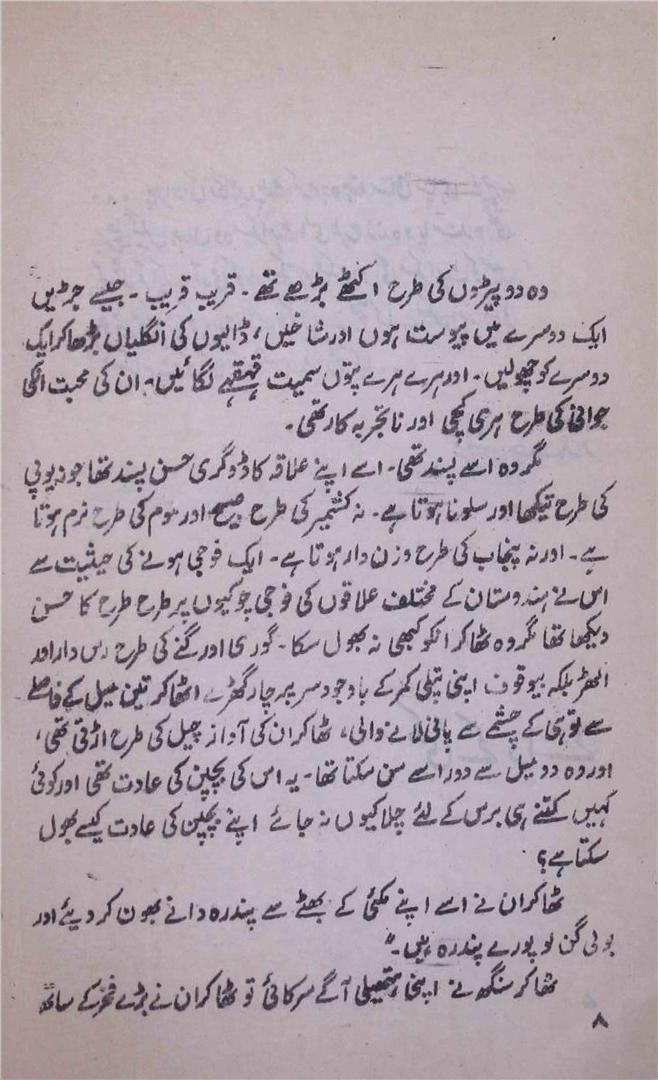 وہ دو پیڑوں کی طرح اکٹھے بڑھے تھے۔ قریب قریب۔ جیسے جڑیں
ایک دوسرے میں پیوست ہوں اور شاخیں، ڈالیوں کی انگلیاں بڑھا کر ایک
دوسرے کو چھولیں۔ اور ہرے ہرے پتوں سمیت قہقہے لگائیں۔ ان کی محبت انکی
جوانی کی طرح ہری کچی اور ناتجربہ کار تھی۔
مگر وہ اسے پسند تھی۔ اسے اپنے علاقہ کا ڈوگری حسن پسند تھا جو نہ یوپی
کی طرح تیکھا اور سلونا ہوتا ہے۔ نہ کشمیر کی طرح صبیح اور موم کی طرح نرم ہوتا
ہے۔ اور نہ پنجاب کی طرح وزن دار ہوتا ہے۔ ایک فوجی ہونے کی حیثیت سے
اس نے ہندوستان کے مختلف علاقوں کی فوجی چوکیوں پر طرح طرح کا حسن
دیکھا تھا مگر وہ ٹھاکرا نکو کبھی نہ بھول سکا۔ گوری اور گنے کی طرح رس دار اور
الھڑ بلکہ بیوقوف اپنی پتلی کمر کے باوجود سر پر چار گھڑے اٹھا کر تین میل کے فاصلے
سے توہی کے چشمے سے پانی لانے والی، ٹھاکران کی آواز چیل کی طرح اڑتی تھی،
اور وہ دو میل سے دور اسے سن سکتا تھا۔ یہ اس کی بچپن کی عادت تھی اور کوئی
کہیں کتنے ہی برس کے لئے چلا کیوں نہ جائے اپنے بچپن کی عادت کیسے بھول
سکتا ہے؟
ٹھاکران نے اسے اپنے مکئی کے بھٹے سے پندرہ دانے بھون کر دیئے اور
بولی گن لو پورے پندرہ ہیں۔"
ٹھاکر سنگھ نے اپنی ہتھیلی آگے سرکائی تو ٹھاکران نے بڑے فخر کے ساتھ
۸